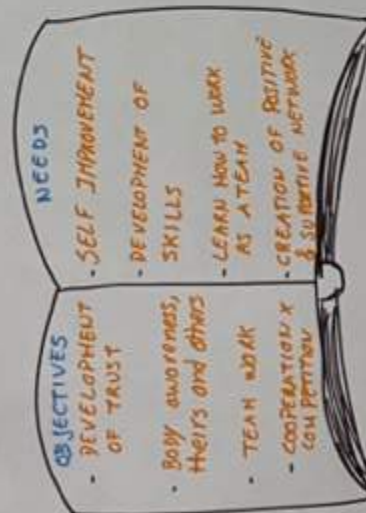 OBJECTIVES
- DEVELOPMENT
OF TRUST
- BODY awareness,
theirs and others
- TEAM WORK
- COOPERATION X
COMPETITION
NEEDS
- SELF IMPROVEMENT
- DEVELOPMENT OF
SKILLS
- LEARN HOW TO WORK
AS A TEAM
- CREATION OF POSITIVE
& SUPPORTIVE NETWORK